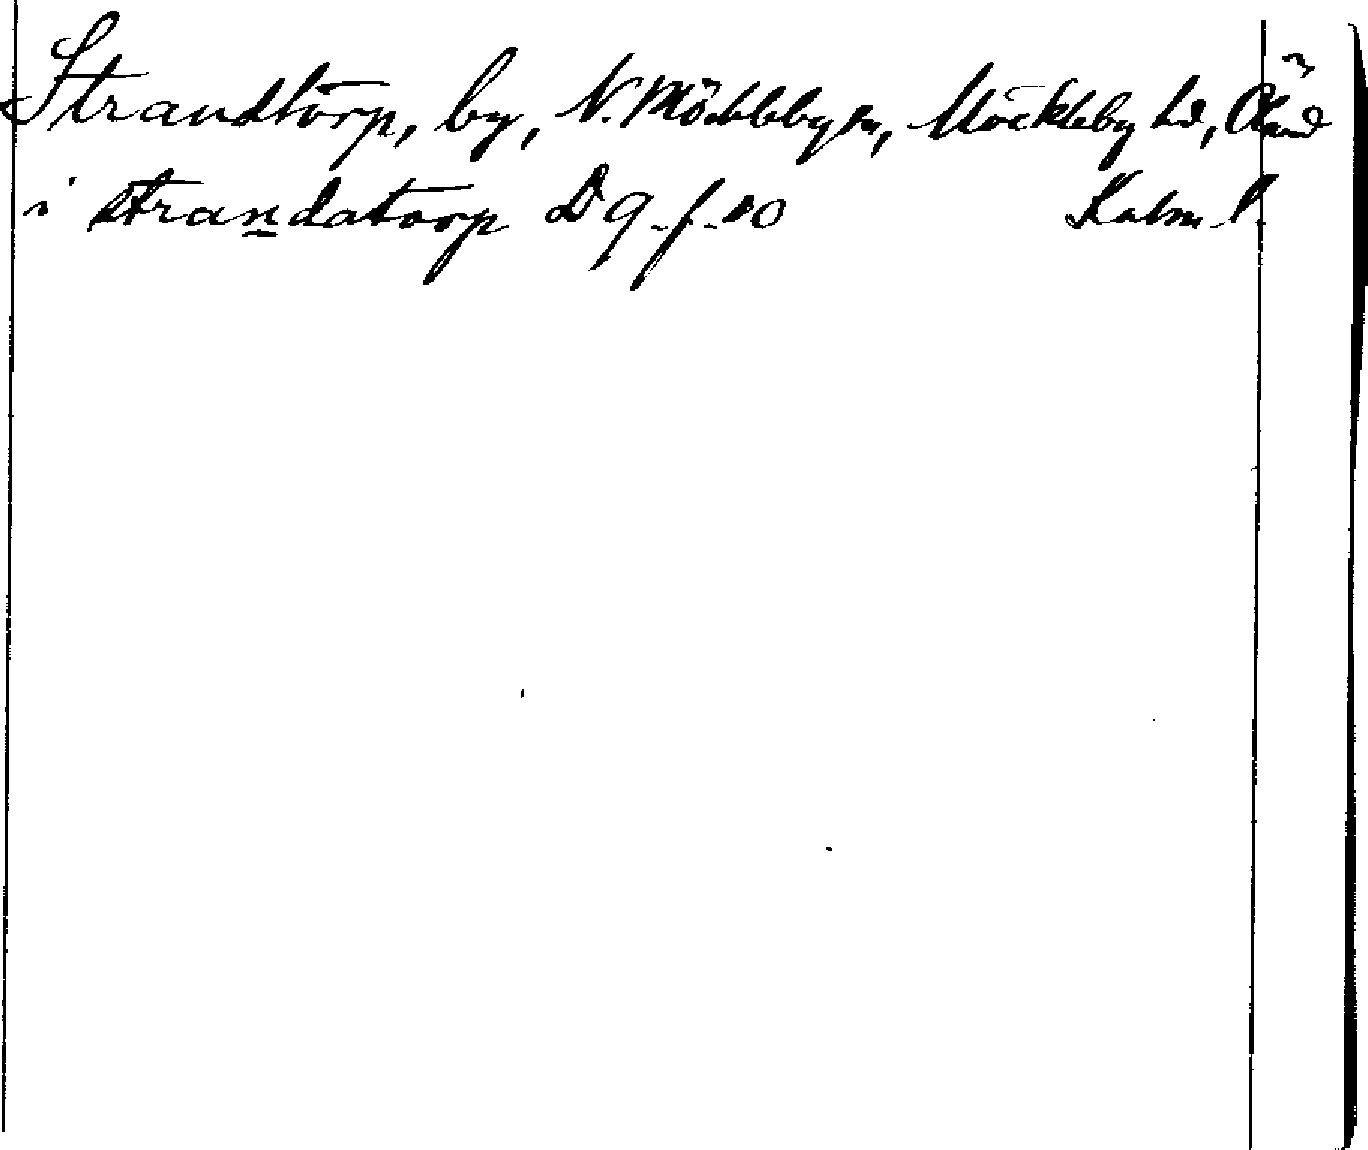 Strandtorp, by, N. Möckleby sn, Möckleby hd, Öland
i strandatorp D 9 f. 10 Kalm. l.